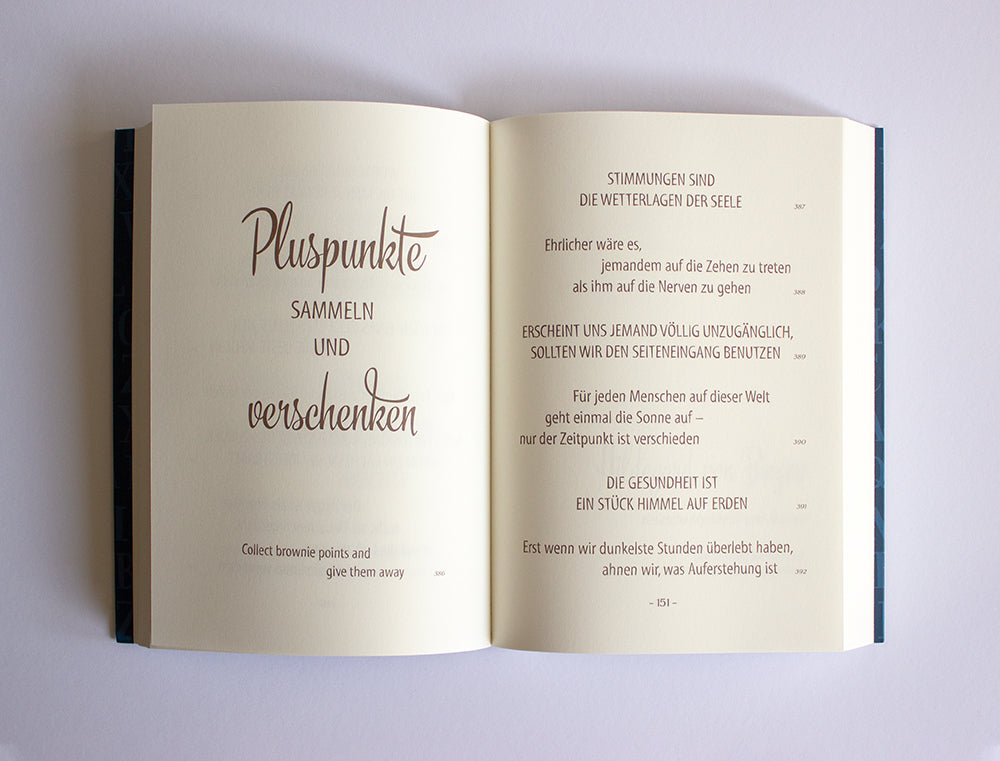 Pluspunkte
SAMMELN
UND
verschenken
Collect brownie points and
give them away 386
STIMMUNGEN SIND
DIE WETTERLAGEN DER SEELE 387
Ehrlicher wäre es,
jemandem auf die Zehen zu treten
als ihm auf die Nerven zu gehen 388
ERSCHEINT UNS JEMAND VÖLLIG UNZUGÄNGLICH,
SOLLTEN WIR DEN SEITENEINGANG BENUTZEN 389
Für jeden Menschen auf dieser Welt
geht einmal die Sonne auf –
nur der Zeitpunkt ist verschieden 390
DIE GESUNDHEIT IST
EIN STÜCK HIMMEL AUF ERDEN 391
Erst wenn wir dunkelste Stunden überlebt haben,
ahnen wir, was Auferstehung ist 392
– 151 –